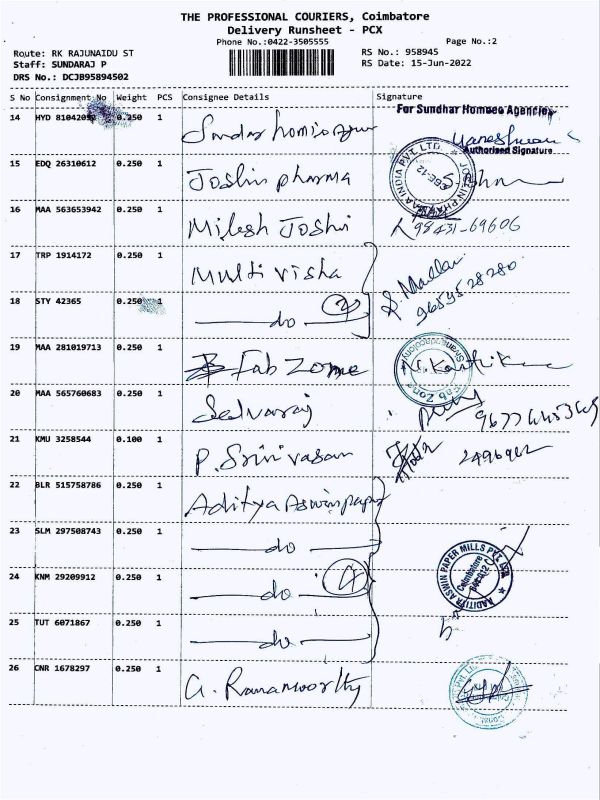 THE PROFESSIONAL COURIERS, Coimbatore
Delivery Runsheet - PCX
Phone No.:0422-3505555 Page No.:2
Route: RK RAJUNAIDU ST RS No.: 958945
Staff: SUNDARAJ P RS Date: 15-Jun-2022
DRS No.: DCJB95894502
S No Consignment No Weight PCS Consignee Details Signature
For Sundhar Homoeo Agencies
14 HYD 8104205 0.250 1
Authorised Signature
15 EDQ 26310612 0.250 1 Joslin pharma
JOSLIN PHARMAA INDIA PVT. LTD.
CBE-12
16 MAA 563653942 0.250 1 Milesh Joshi 98431-69606
17 TRP 1914172 0.250 1 Multi visha
9659528280
18 STY 42365 0.250 1 do 2
19 MAA 281019713 0.250 1 Fab Zome K. Karthik
Fab Zone
20 MAA 565760683 0.250 1 Selvaraj
21 KMU 3258544 0.100 1 P. Srinivasan 2496962
22 BLR 515758786 0.250 1 Aditya Aswin paper
23 SLM 297508743 0.250 1 do
AADITYA ASWIN PAPER MILLS PVT. LTD.
Coimbatore
24 KNM 29209912 0.250 1 do 4
25 TUT 6071867 0.250 1 do
26 CNR 1678297 0.250 1 G. Ramamoorthy